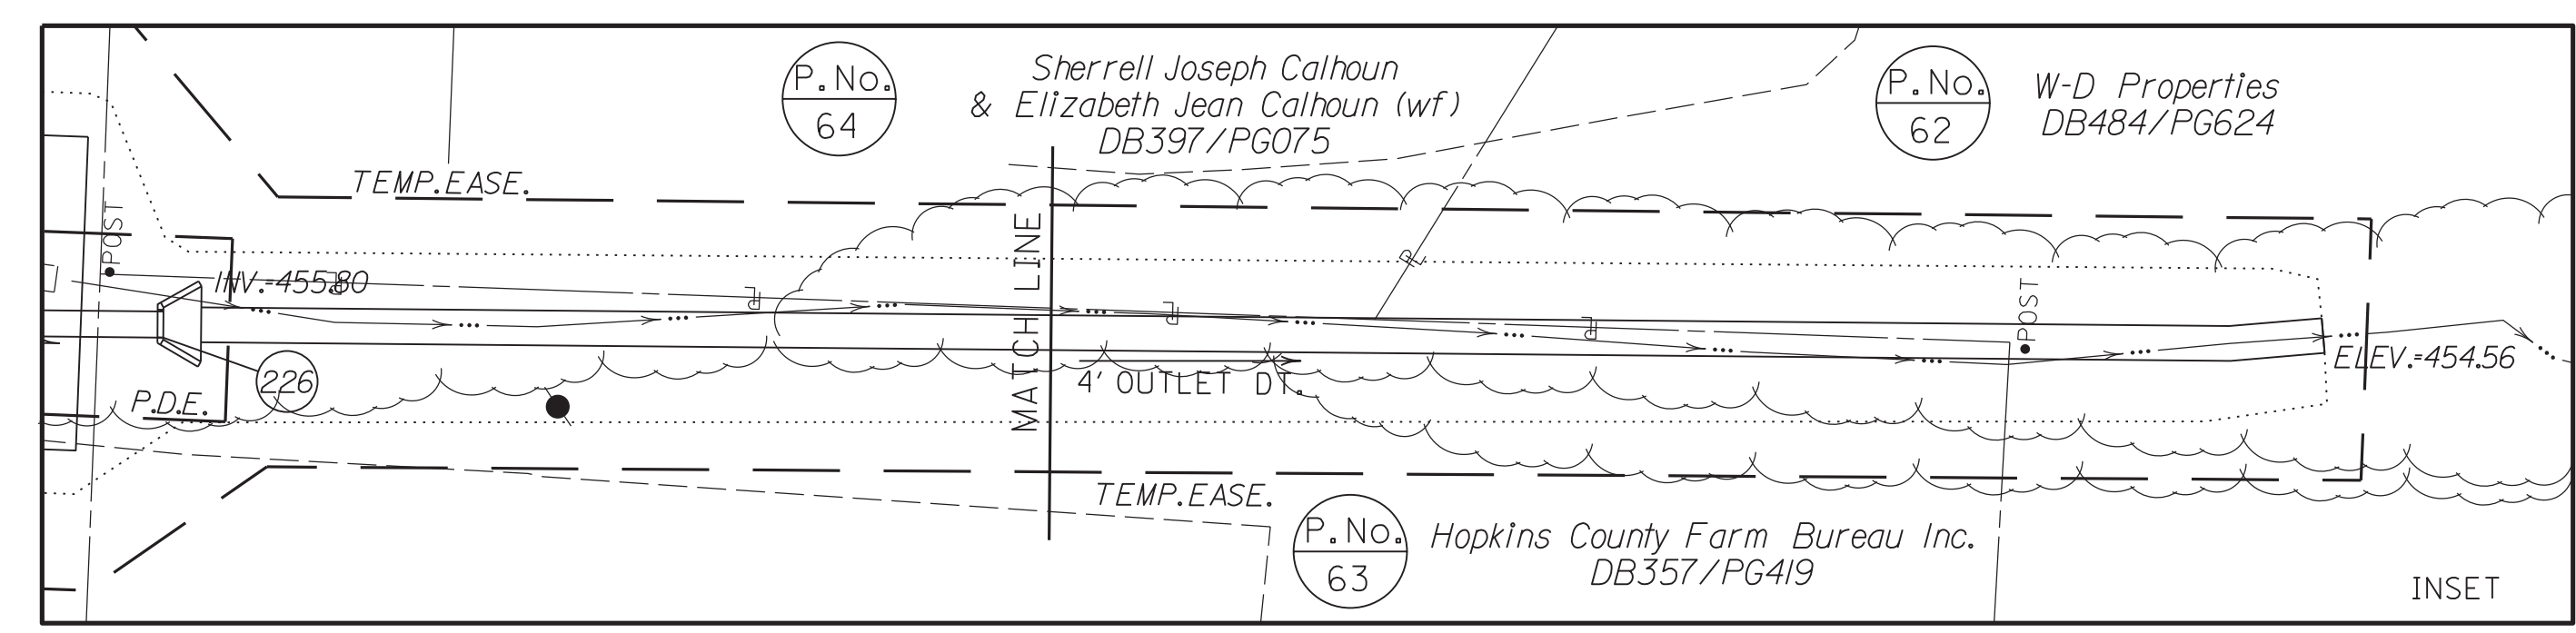 P.No.
64
Sherrell Joseph Calhoun
& Elizabeth Jean Calhoun (wf)
DB397/PG075
P.No.
62
W-D Properties
DB484/PG624
TEMP.EASE.
POST
INV.=455.80
MATCH LINE
POST
ELEV.=454.56
226
P.D.E.
4' OUTLET DT.
TEMP.EASE.
P.No.
63
Hopkins County Farm Bureau Inc.
DB357/PG419
INSET